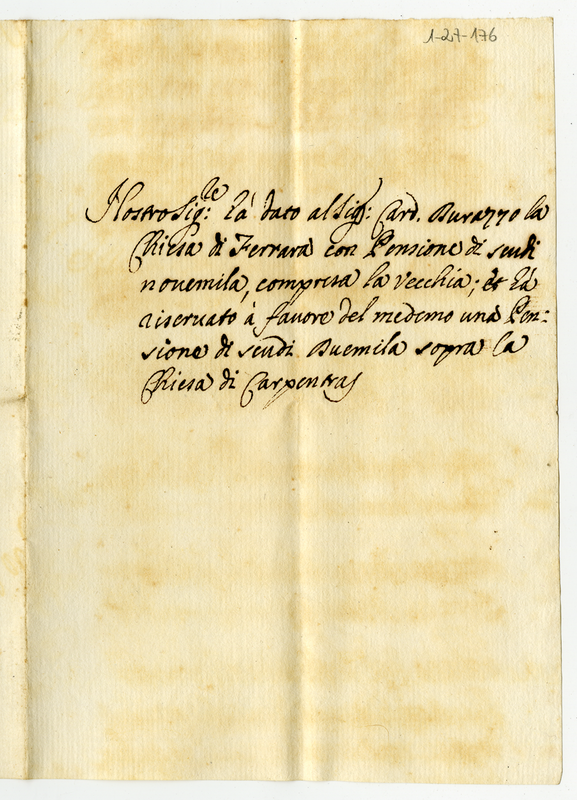 1-27-176
Nostro Sig:re hà dato al Sig:r Card. Durazzo la
Chiesa di Ferrara con Pensione di scudi
novemila, compresa la vecchia; et hà
riservato à favore del medemo una Pen:
sione di scudi Duemila sopra la
Chiesa di Carpentras